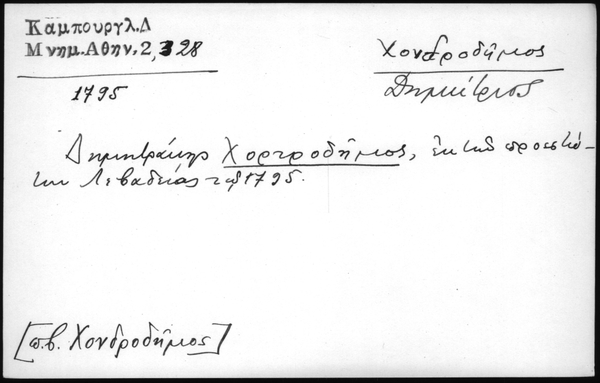 Καμπουργλ.Δ
Μνημ.Αθην.2,328
Χονδροδῆμος
Δημήτριος
1795
Δημητράκης Χορτροδῆμος, ἐκ τῶν προεστώ-
των Λεβαδείας τῷ 1795.
[π.β. Χονδροδῆμος]